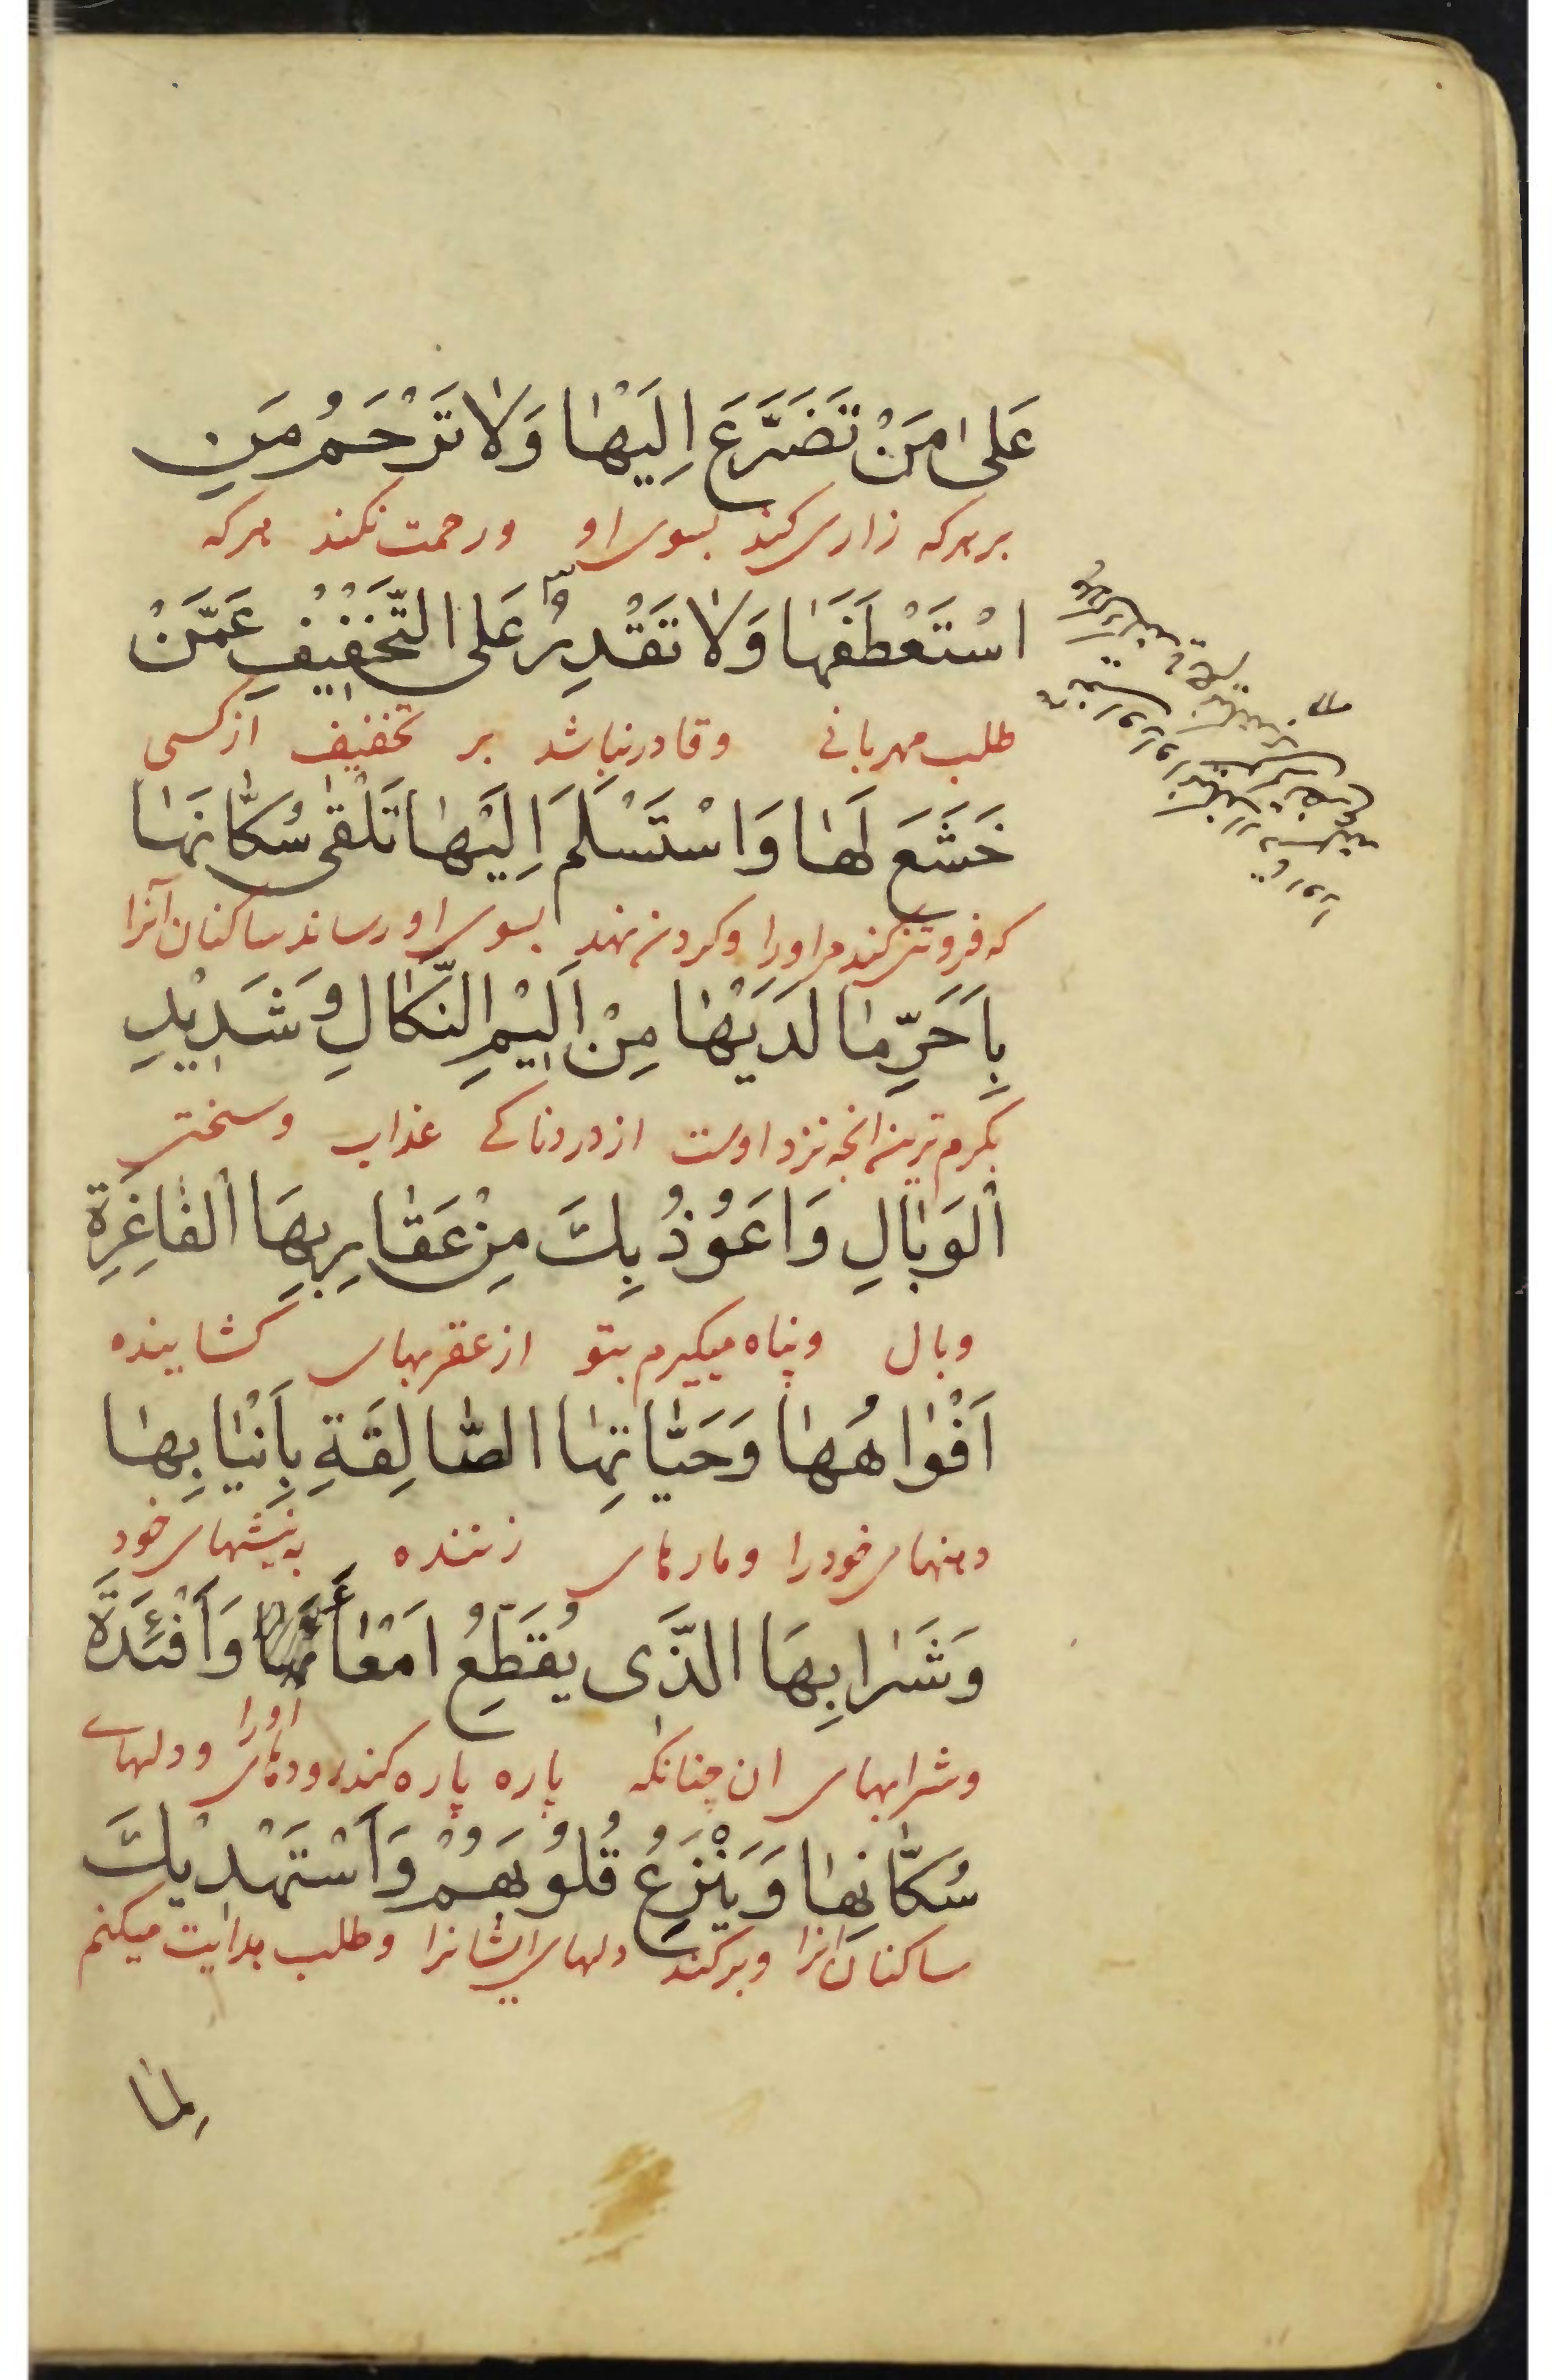 عَلىٰ مَنْ تَضَرَّعَ اِلَيْهٰا وَلاٰ تَرْحَمُ مَنِ
بر هرکه زاری کند بسوی او ورحمت نکند هرکه
اسْتَعْطَفَهٰا وَلاٰ تَقْدِرُ عَلَى التَّخْفٖيفِ عَمَّنْ
طلب مهربانی وقادر نباشد بر تخفیف از کسی
خَشَعَ لَهٰا وَاسْتَسْلَمَ اِلَيْهٰا تَلْقىٰ سُكّٰانَهٰا
که فروتنی کند مر اورا وکردن نهد بسوی او رساند ساکنان آنرا
بِاَحَرِّ مٰا لَدَيْهٰا مِنْ اَلٖيْمِ النَّكٰالِ وَشَدٖيْدِ
بگرم ترین انچه نزد اوست از دردناکی عذاب وسختی
الْوَبٰالِ وَاَعُوْذُ بِكَ مِنْ عَقٰارِبِهَا الْفٰاغِرَةِ
وبال وپناه میکیرم بتو از عقربهای کشاینده
اَفْوٰاهُهٰا وَحَيّٰاتِهَا الصّٰالِقَةِ بِاَنْيٰابِهٰا
دهنهای خودرا ومارهای زننده به نیشهای خود
وَشَرٰابِهَا الَّذٖى يُقَطِّعُ اَمْعٰأَ وَاَفْئِدَةَ
وشرابهای ان چنانکه پاره پاره کند رودهای اورا ودلهای
سُكّٰانِهٰا وَيَنْزِعُ قُلُوْبَهُمْ وَاَسْتَهْدٖيْكَ
ساکنان انرا وبرکند دلهای ایشانرا وطلب هدایت میکنم
لِمٰا